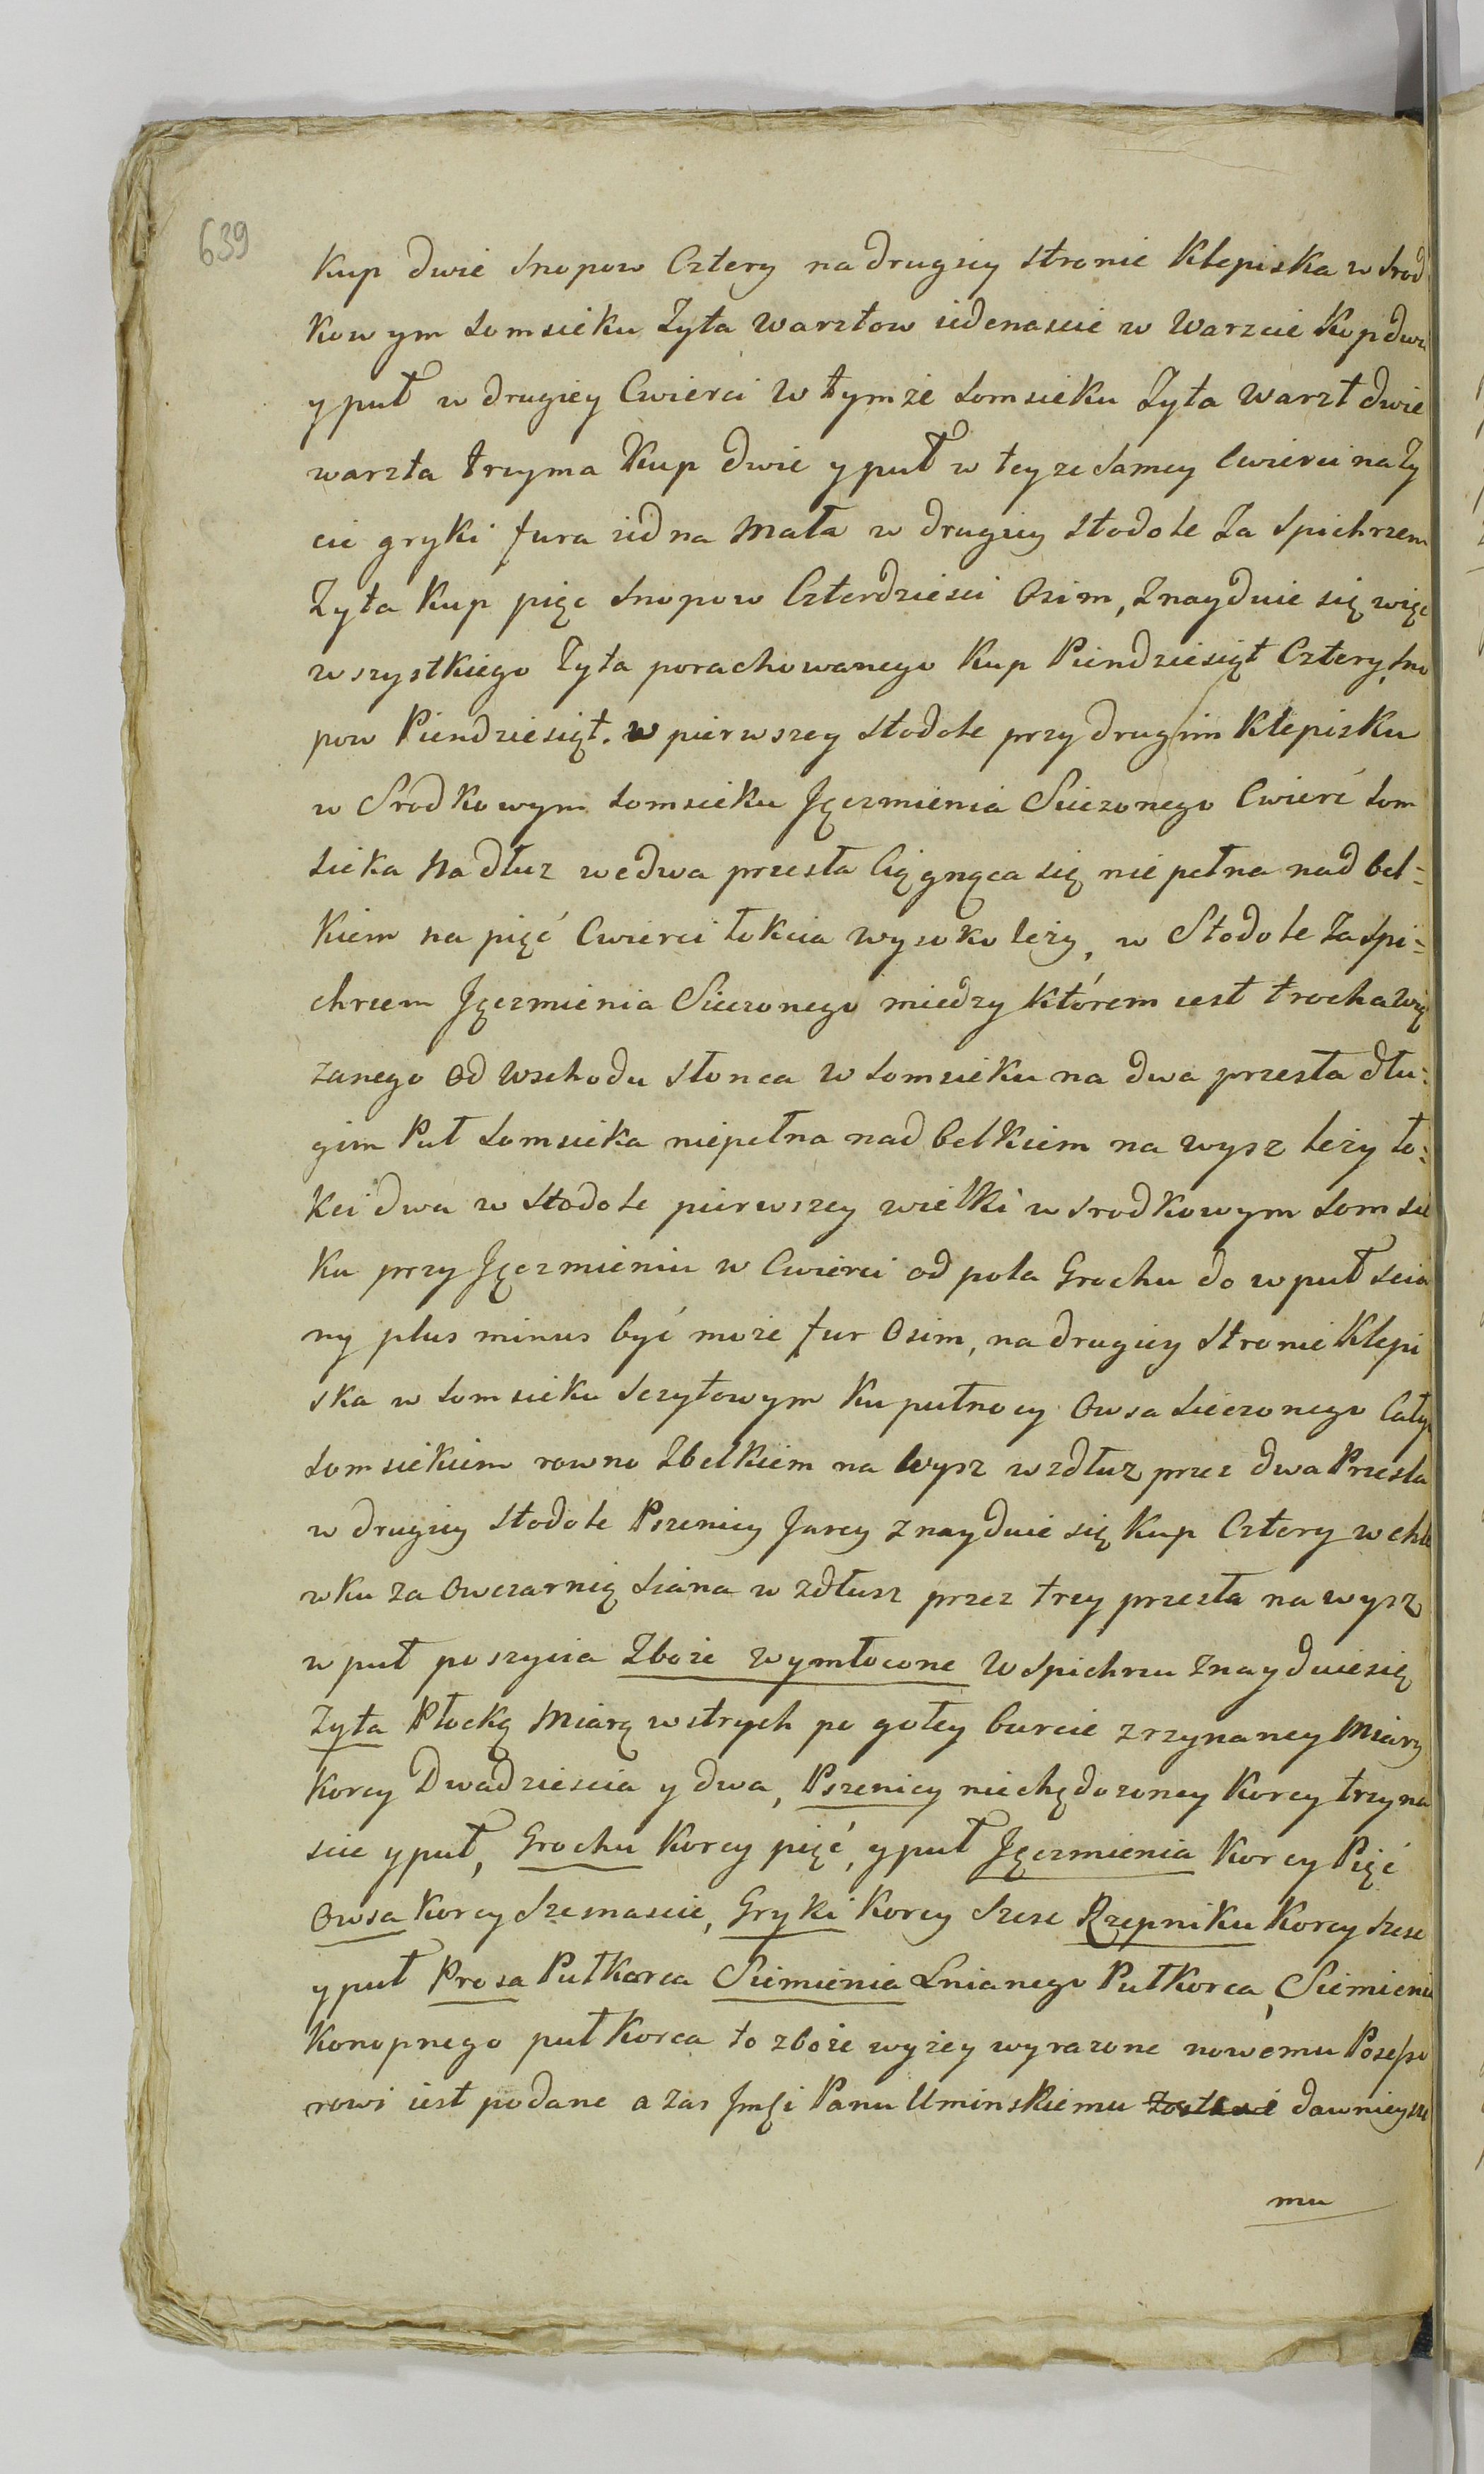 639
Kup dwie Snopow Cztery na drugiey stronie Klepiska w Srod
kowym Somsieku Zyta Warztow iedenascie w Warzcie Kop dwie
y puł w drugiey Cwierci w tymże Somsieku Zyta Warzt dwie
warzta trzyma Kup dwie y puł w teyze Samey Cwierci na Zy
cie gryki fura iedna Mała w drugiey Stodole Za Spichrzem
Zyta Kup pięc Snopow Czterdziesci Osim, Znayduie się więc
wszystkiego Zyta porachowanego Kup Piendziesiąt Cztery, Sno
pow Piendziesiąt. w pierwszey Stodole przy drugim Klepisku
w Srodkowym Somsieku Jęczmienia Sieczonego Cwierć Som
sieka Na dłuz we dwa przesła Ciągnąca się nie pełna nad bel=
kiem na pięć Cwierci łokcia wysoko leży, w Stodole Za Spi=
chrzem Jęczmienia Sieczonego miedzy którem iest trocha Wią
zanego od Wschodu Słonca w Somsieku na dwa przesła dłu=
gim Puł Somsieka niepełna nad belkiem na wysz leży ło=
kci dwa w Stodole pierwszey wielki w srodkowym Somsie
ku przy Jęczmieniu w Cwierci od pola Grochu do w puł Scia
ny plus minus być może fur Osim, na drugiey Stronie Klepi
ska w Somsieku Sczytowym Ku pułnocy Owsa Sieczonego Cały
Somsiekiem rowno Zbelkiem na Wysz wzdłuz przez dwa Przesła
w drugiey Stodole Pszenicy Jarey znayduie się Kup Cztery w chle
wku za Owczarnią Siana w zdłusz przez trzy przesła na wysz
w puł poszycia Zboże wymłocone W Spichrzu Znayduie się
Zyta Płocką Miarą w strych po gołey burcie zrzynaney Miary
Korcy Dwadziescia y dwa, Pszenicy niechędozoney Korcy trzyna
scie y puł, Grochu Korcy pięć, y puł Jęczmienia Korcy Pięć
Owsa Korcy Szesnascie, Gryki Korcy Szesc Rzepniku Korcy Szesc
y puł Prosa Puł Korca Siemienia Lnianego Puł Korca, Siemieni
Konopnego puł Korca to zboże wyżey wyrazone nowemu Possesso
rowi iest podane a zas Jmci Panu Uminskiemu dawnieysze
mu